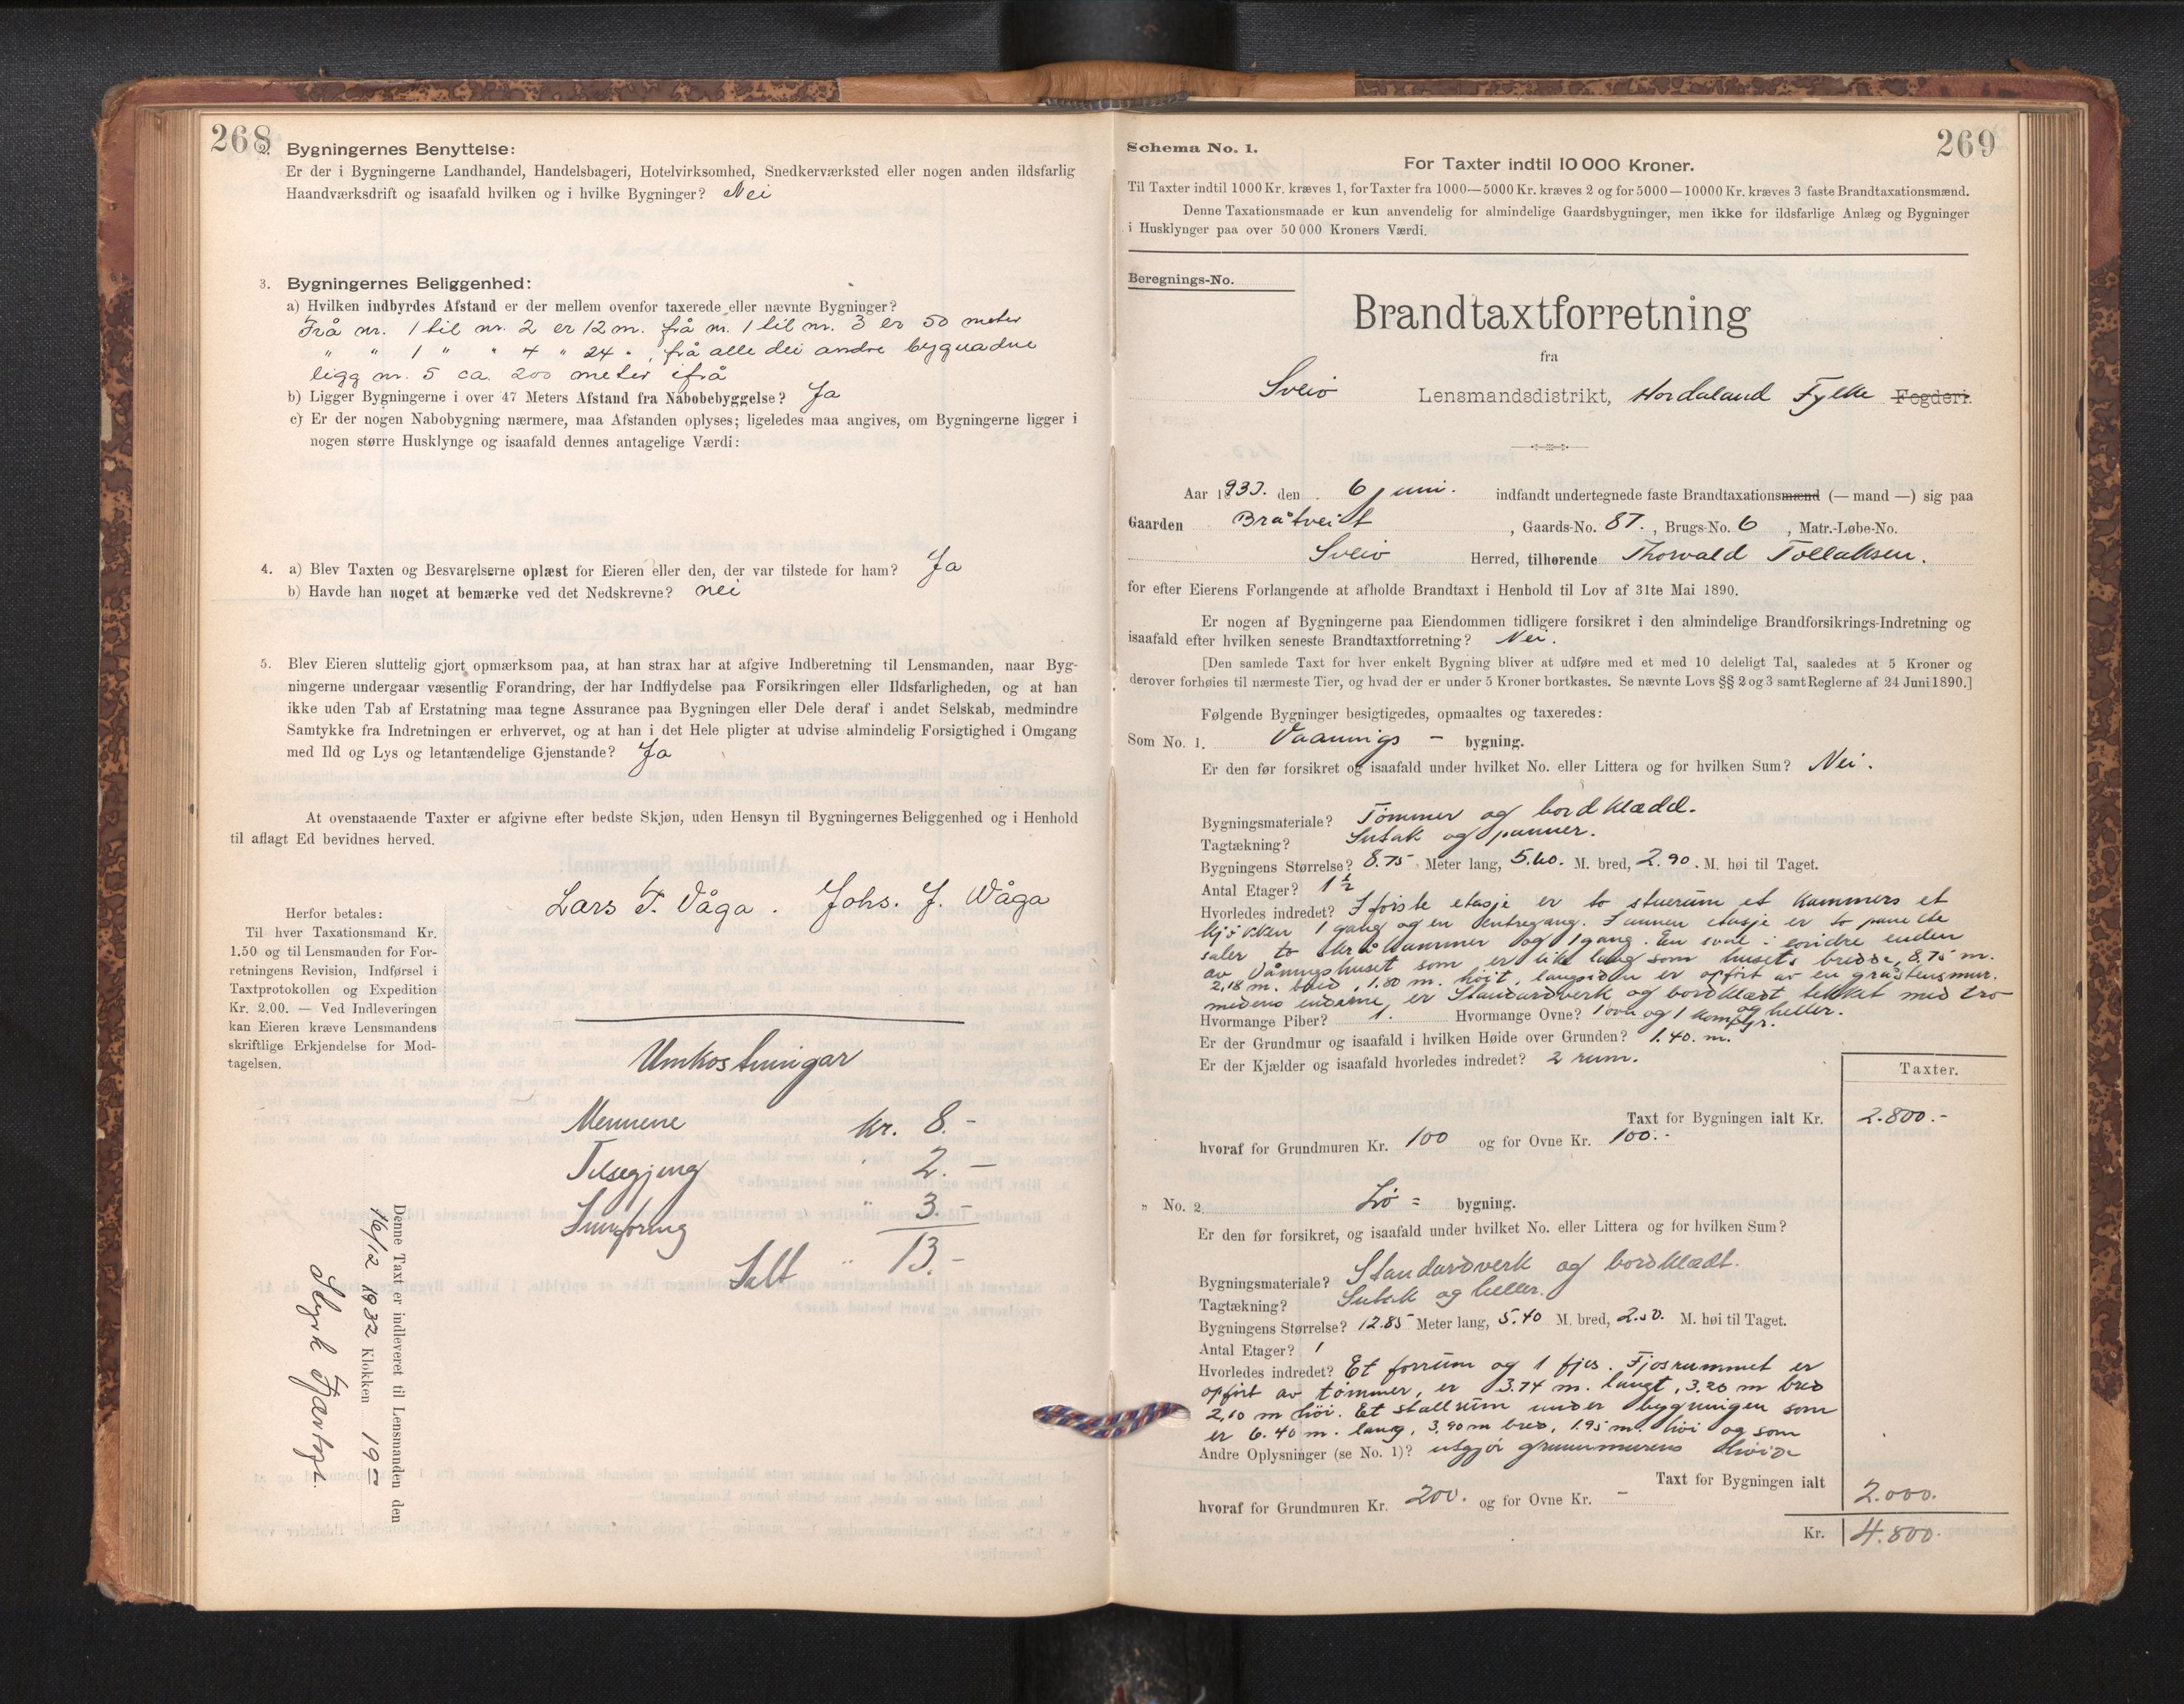 268
2. Bygningernes Benyttelse:
Er der i Bygningerne Landhandel, Handelsbageri, Hotelvirksomhed, Snedkerværksted eller nogen anden ildsfarlig
Haandværksdrift og isaafald hvilken og i hvilke Bygninger? Nei
3. Bygningernes Beliggenhed:
a) Hvilken indbyrdes Afstand er der mellem ovenfor taxerede eller nævnte Bygninger?
Frå nr. 1 til nr. 2 er 12 m. frå nr. 1 til nr. 3 er 50 meter
" " 1 " " 4 " 24 " , frå alle dei andre bygnadne
ligg nr. 5 ca. 200 meter ifrå
b) Ligger Bygningerne i over 47 Meters Afstand fra Nabobebyggelse? Ja
c) Er der nogen Nabobygning nærmere, maa Afstanden oplyses; ligeledes maa angives, om Bygningerne ligger i
nogen større Husklynge og isaafald dennes antagelige Værdi:
4. a) Blev Taxten og Besvarelserne oplæst for Eieren eller den, der var tilstede for ham? Ja
b) Havde han noget at bemærke ved det Nedskrevne? nei
5. Blev Eieren sluttelig gjort opmærksom paa, at han strax har at afgive Indberetning til Lensmanden, naar Byg-
ningerne undergaar væsentlig Forandring, der har Indflydelse paa Forsikringen eller Ildsfarligheden, og at han
ikke uden Tab af Erstatning maa tegne Assurance paa Bygningen eller Dele deraf i andet Selskab, medmindre
Samtykke fra Indretningen er erhvervet, og at han i det Hele pligter at udvise almindelig Forsigtighed i Omgang
med Ild og Lys og letantændelige Gjenstande? Ja
At ovenstaaende Taxter er afgivne efter bedste Skjøn, uden Hensyn til Bygningernes Beliggenhed og i Henhold
til aflagt Ed bevidnes herved.
Lars T. Våga. Johs. J. Våga
Herfor betales:
Til hver Taxationsmand Kr.
1.50 og til Lensmanden for For-
retningens Revision, Indførsel i
Taxtprotokollen og Expedition
Kr. 2.00. — Ved Indleveringen
kan Eieren kræve Lensmandens
skriftlige Erkjendelse for Mod-
tagelsen.
Umkostningar
Mennene kr. 8.-
Tilsegjing " 2.-
Innføring " 3.-
Ialt " 13.-
Denne Taxt er indleveret til Lensmanden den
16/12 1932 Klokken 19
269
Schema No. 1.
For Taxter indtil 10 000 Kroner.
Til Taxter indtil 1000 Kr. kræves 1, for Taxter fra 1000—5000 Kr. kræves 2 og for 5000—10000 Kr. kræves 3 faste Brandtaxationsmænd.
Denne Taxationsmaade er kun anvendelig for almindelige Gaardsbygninger, men ikke for ildsfarlige Anlæg og Bygninger
i Husklynger paa over 50 000 Kroners Værdi.
Beregnings-No.
Brandtaxtforretning
fra
Sveio Lensmandsdistrikt, Hordaland Fylke Fogderi.
Aar 1933. den 6 juni. indfandt undertegnede faste Brandtaxationsmænd (— mand —) sig paa
Gaarden Bråtveit, Gaards-No. 87., Brugs-No. 6, Matr.-Løbe-No.
Sveio Herred, tilhørende Thorvald Tollaksen.
for efter Eierens Forlangende at afholde Brandtaxt i Henhold til Lov af 31te Mai 1890.
Er nogen af Bygningerne paa Eiendommen tidligere forsikret i den almindelige Brandforsikrings-Indretning og
isaafald efter hvilken seneste Brandtaxtforretning? Nei.
[Den samlede Taxt for hver enkelt Bygning bliver at udføre med et med 10 deleligt Tal, saaledes at 5 Kroner og
derover forhøies til nærmeste Tier, og hvad der er under 5 Kroner bortkastes. Se nævnte Lovs §§ 2 og 3 samt Reglerne af 24 Juni 1890.]
Følgende Bygninger besigtigedes, opmaaltes og taxeredes:
Som No. 1. Vaanings - bygning.
Er den før forsikret og isaafald under hvilket No. eller Littera og for hvilken Sum? Nei.
Bygningsmateriale? Tømmer og bordklædd.
Tagtækning? Sutak og panner.
Bygningens Størrelse? 8.75 Meter lang, 5.60. M. bred, 2.90. M. høi til Taget.
Antal Etager? 1 1/2
Hvorledes indredet? I første etasje er to stuerum et kammers et
kjøkken 1 gang og en entregang. I annen etasje er to panelte
saler to skråkammer og 1 gang. En sval i søndre enden
av Våningshuset som er like lang som husets bredde, 8,75 m.
2,18 m. bred, 1.80 m. høit, langsiden er opført av en gråstensmur.
medens enderne er Standardverk og bordklædt tekket med tro
og heller.
Hvormange Piber? 1. Hvormange Ovne? 1 ovn og 1 komfyr.
Er der Grundmur og isaafald i hvilken Høide over Grunden? 1.40. m.
Er der Kjælder og isaafald hvorledes indredet? 2 rum.
Taxter.
Taxt for Bygningen ialt Kr. 2.800.-
hvoraf for Grundmuren Kr. 100 og for Ovne Kr. 100.-
" No. 2. Lö = bygning.
Er den før forsikret, og isaafald under hvilket No. eller Littera og for hvilken Sum?
Bygningsmateriale? Standardverk og bordklædt.
Tagtækning? Sutak og heller.
Bygningens Størrelse? 12.85 Meter lang, 5.40 M. bred, 2.50. M. høi til Taget.
Antal Etager? 1
Hvorledes indredet? Et forrum og 1 fjos. Fjosrummet er
opført av tømmer, er 3.74 m. langt, 3.20 m bred
2,10 m høi. Et stallrum under bygningen som
er 6.40 m. lang, 3,90 m bred, 1.95 m. høi og som
Andre Oplysninger (se No. 1)? utgjør grunnmurens høide
Taxt for Bygningen ialt 2.000.
hvoraf for Grundmuren Kr. 200. og for Ovne Kr. -
Kr. 4.800.